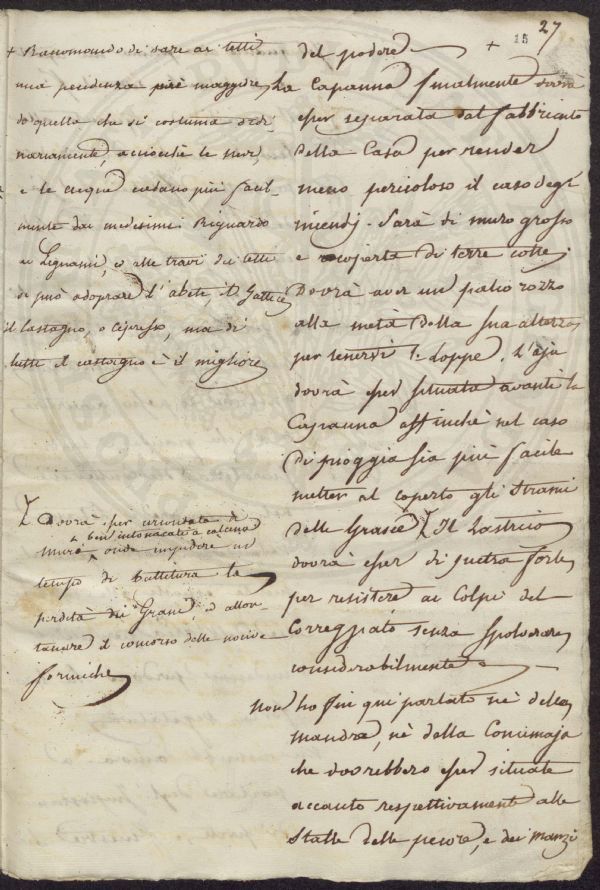 27
15
+ Rammondo di fare ai tetti
una pendenza più maggiore
di quella che si costuma ordi-
nariamente, acciochè le nevi,
e le acque cadano più facil-
mente dai medesimi. Riguardo
ai Legnami, e alle travi dei tetti
si può adoprare l'abete, il Gattice
il Castagno, o Cipresso, ma di
tutti il castagno è il migliore
Dovrà esser circondata di
muro ben intonacato a calcina
onde impedire in
tempo di battitura la
perdita dei Grani, ed allon-
tanare il concorso delle nocive
formiche
del podere +
La Capanna finalmente dovrà
esser separata dal fabbricato
della Casa per render
meno pericoloso il caso degl'
incendj. Sarà di muro grosso
e ricoperta di terre cotte.
Dovrà aver un palco rozzo
alla metà della sua altezza
per tenervi le loppe. L'aja
dovrà esser situata avanti la
Capanna affinchè nel caso
di pioggia sia più facile
metter al coperto gli Strami
delle Grasce. Il Lastrico
dovrà esser di pietra forte
per resistere ai Colpi del
Correggiato senza spolverare
considerabilmente.
Non ho fin qui parlato nè della
mandra, nè della Concimaja
che dovrebbero esser situate
accanto respettivamente alle
Stalle delle pecore, e dei manzi